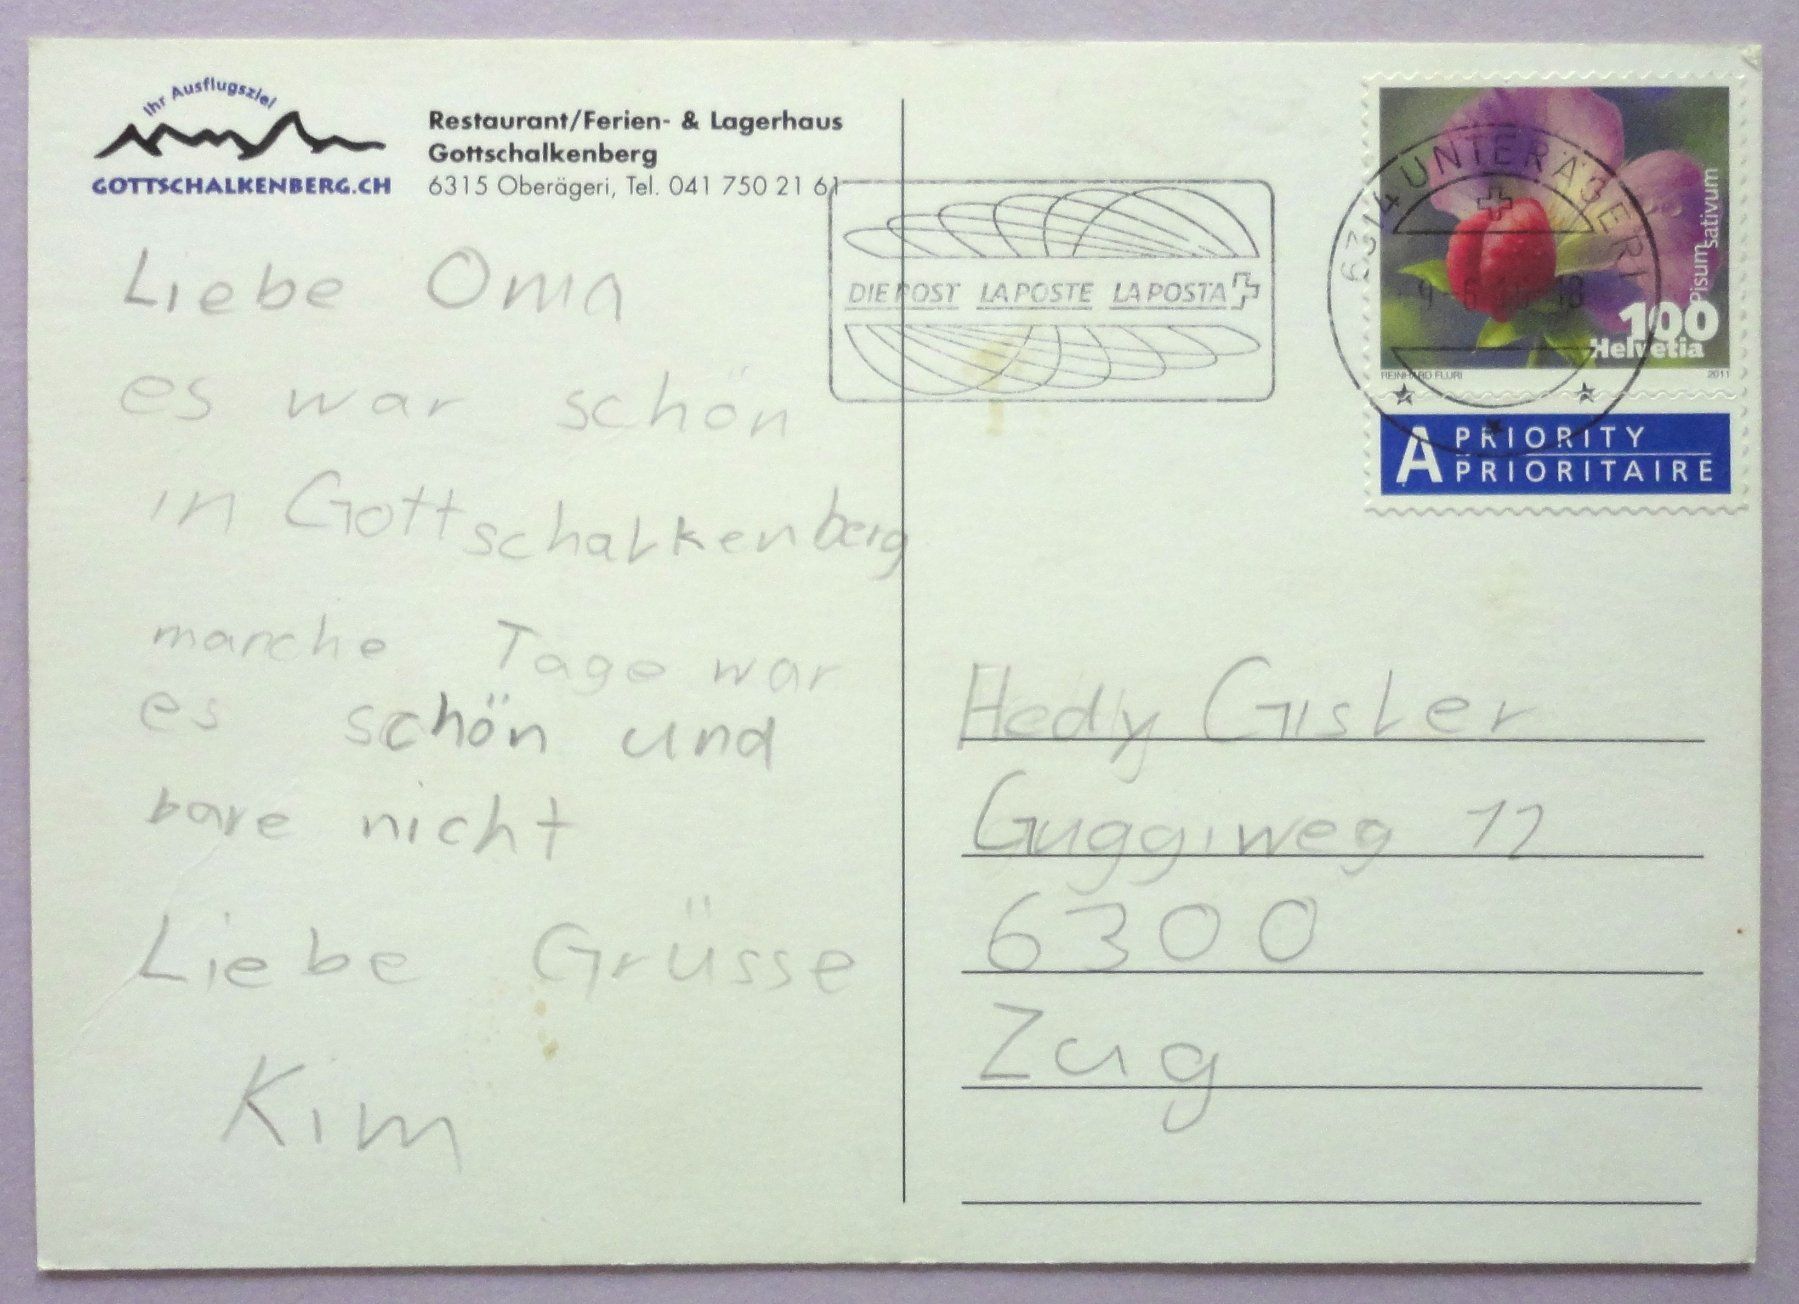 Ihr Ausflugsziel
GOTTSCHALKENBERG.CH
Restaurant/Ferien- & Lagerhaus
Gottschalkenberg
6315 Oberägeri, Tel. 041 750 21 61
Liebe Oma
es war schön
in Gottschalkenberg
manche Tage war
es schön und
nicht
Liebe Grüsse
Kim
DIE POST LA POSTE LA POSTA
6314 UNTERÄGERI
Pisum sativum
100
Helvetia
REINHARD FLURI 2011
A PRIORITY
PRIORITAIRE
Hedly Gisler
Guggiweg 12
6300
Zug